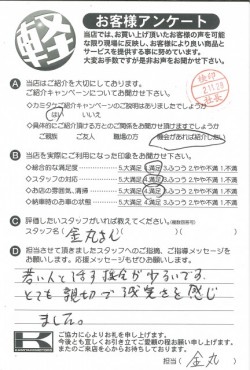 軽
お客様アンケート
当店では、お買い上げ頂いたお客様の声を可能
な限り現場に反映し、お客様により良い商品と
サービスを提供する事に努めています。
大変お手数ですが是非お声をお聞かせ下さい。
A 当店はご紹介を大切にしております。
ご紹介キャンペーンについてお聞かせ下さい
◇カミタケご紹介キャンペーンのご説明はありましたでしょうか
はい いいえ
◇具体的にご紹介頂ける方とのご関係をお聞かせ頂けますでしょうか
ご親族 ご友人 職場の方 機会があれば紹介したい
B 当店を実際にご利用になった印象をお聞かせ下さい
◇総合的な満足度 5.大満足 4.満足 3.ふつう 2.やや不満 1.不満
◇スタッフの対応 5.大満足 4.満足 3.ふつう 2.やや不満 1.不満
◇お店の雰囲気、清掃 5.大満足 4.満足 3.ふつう 2.やや不満 1.不満
◇納車時のお車の状態 5.大満足 4.満足 3.ふつう 2.やや不満 1.不満
C 評価したいスタッフがいれば教えてください。(複数回答可)
スタッフ名( 金丸さん )
D 担当させて頂きましたスタッフへのご指摘、ご指導メッセージを
お願いします。応援メッセージもぜひお願い致します。
若い人と話す機会が少ないです、
とても親切で誠実さを感じ
ました。
ご協力に心よりお礼を申し上げます。
今後とも宜しくお引き立てご愛顧の程お願い申し上げます。
またのご来店を心からお待ちしております。
担当( 金丸 )